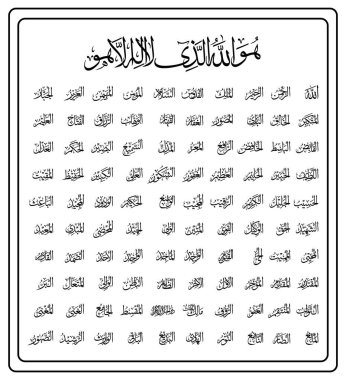 هو الله الذي لا إله إلا هو
الله الرحمن الرحيم الملك القدوس السلام المؤمن المهيمن العزيز الجبار
المتكبر الخالق البارئ المصور الغفار القهار الوهاب الرزاق الفتاح العليم
القابض الباسط الخافض الرافع المعز المذل السميع البصير الحكم العدل
اللطيف الخبير الحليم العظيم الغفور الشكور العلي الكبير الحفيظ المقيت
الحسيب الجليل الكريم الرقيب المجيب الواسع الحكيم الودود المجيد الباعث
الشهيد الحق الوكيل القوي المتين الولي الحميد المحصي المبدئ المعيد
المحيي المميت الحي القيوم الواجد الماجد الواحد الأحد الصمد القادر
المقتدر المقدم المؤخر الأول الآخر الظاهر الباطن الوالي المتعال البر
التواب المنتقم العفو الرؤوف مالك الملك ذو الجلال والإكرام المقسط الجامع الغني المغني
المانع الضار النافع النور الهادي البديع الباقي الوارث الرشيد الصبور